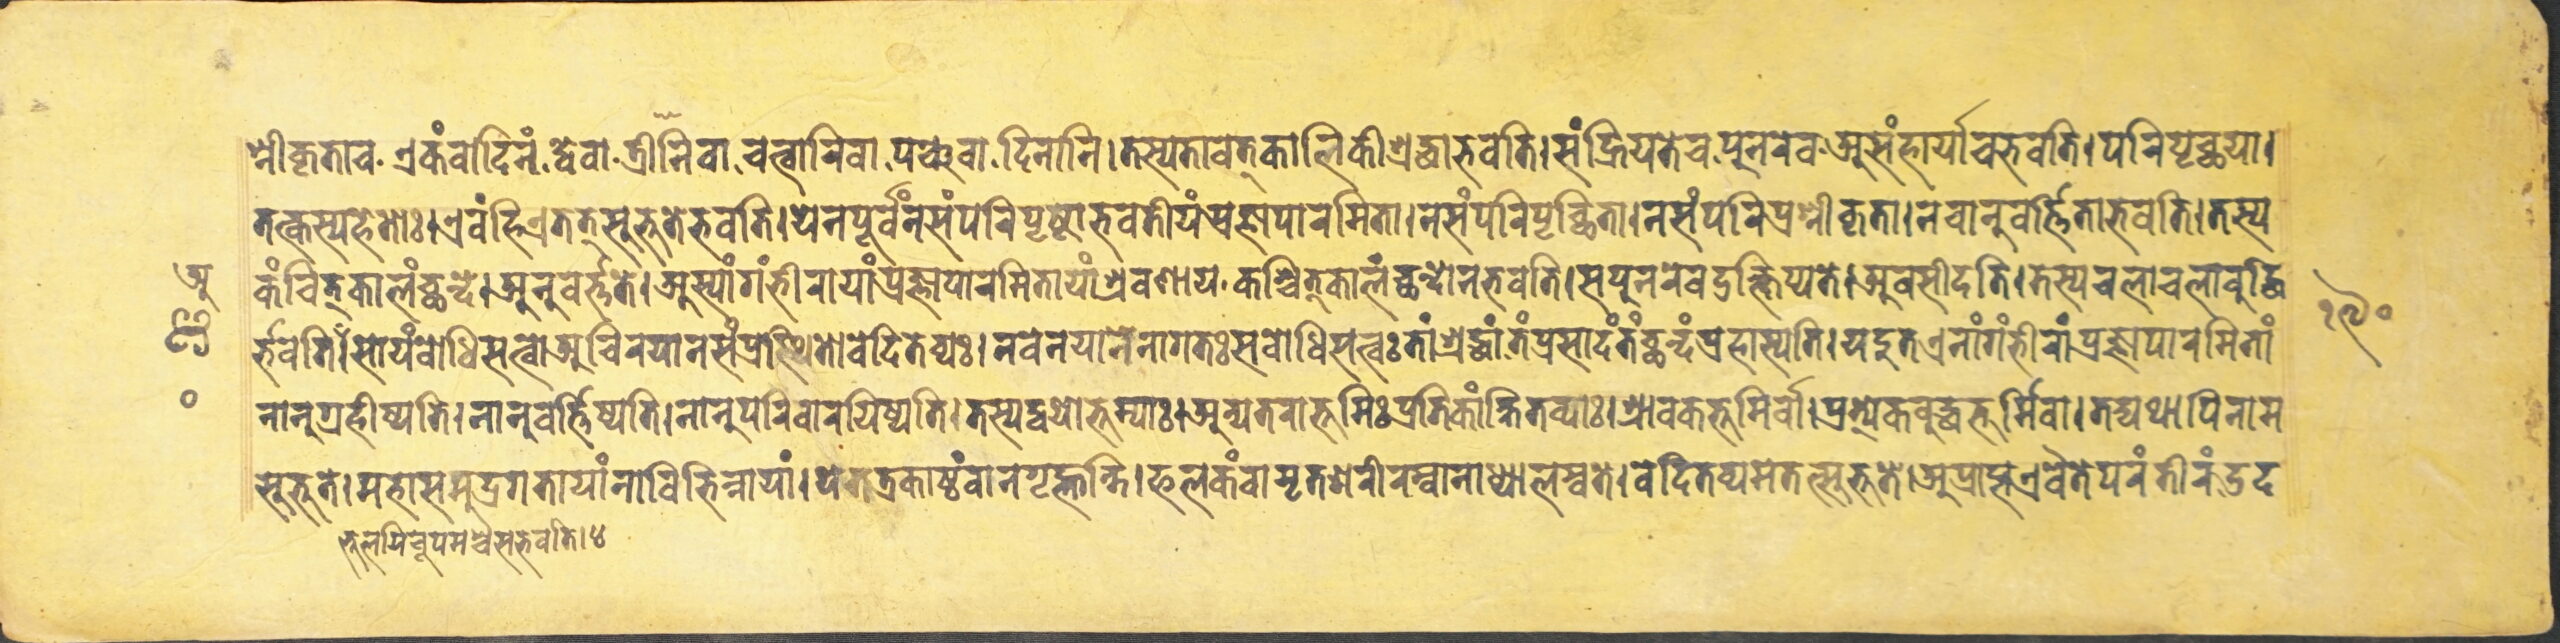 श्नीकृताव एकंवादिनं द्वेवा त्रीनिवा चत्वारिवा पञ्चवा दिनानि। तस्यतावत्कालिकीश्रद्धाभवति। संह्रियतेच पुनरेव असंहार्याचभवति। परिपृच्छया।
तत्कस्यहेतोः। एवंहिएतत्सुभुतेभवति। येनपूर्वंनसंपरिपृष्टाभवतीयंप्रज्ञापारमिता। नसंपरिपृच्छिता। नसंपरिप्रश्नीकृता। नचानुवर्त्तिताभवति। तस्य
कंचित्कालंच्छन्दो। अनुवर्त्तते। अस्यांगंभीरायांप्रज्ञापारमितायांश्रवणाय कञ्चित्कालंच्छन्दोनभवति। सपुनरेवद्रत्क्षिप्यते। अवसीदति। तस्यचलाचलाबुद्धि
र्भवति। सोयंबोधिसत्वोअचिरयानसंप्रस्थितोवेदितव्यः। नवेनयानेनागतःसबोधिसत्वःतांश्रद्धांतंप्रसादंतंच्छन्दंप्रहास्यति। यदुतएनांगंभीरांप्रज्ञापारमितां
नानुग्रहीष्यति। नानुवर्त्तिष्यति। नानुपरिवारयिष्यति। तस्यद्वयोभुम्याः। अन्यतराभुमिःप्रतिकांक्षितव्याः। श्रावकभुमिर्वा। प्रत्येकबुद्धभुर्मिवा। तद्यथापिनाम
सुभुते। महासमुद्रगतायांनाविभिन्नायां। येतत्रकाष्ठंवानगृह्णन्ति। फलकंवामृतशरीरम्वानाध्यालम्बते। वेदितव्यमेतत्सुभुते। अप्राप्तएवैतेपरंतीरंउद
तुलपिचूपमश्चैसभवति। ४
अ
१९०